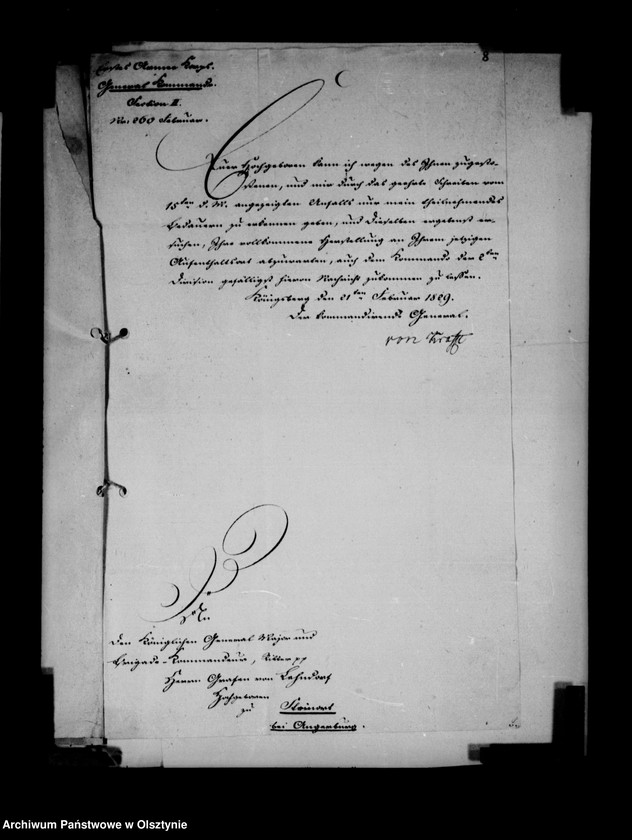 8
Erstes Armee Korps.
General Kommando.
Section II.
No. 260 Februar.
Euer Hochgeboren kann ich wegen des Ihnen zugesto-
ßenen, und mir durch das geehrte Schreiben vom
15ten d. M. angezeigten Unfalls nur mein theilnehmendes
Bedauern zu erkennen geben, und Dieselben ergebenst er-
suchen, Ihre vollkommene Herstellung an Ihrem jetzigen
Aufenthaltsort abzuwarten, auch dem Kommando der 2ten
Division gefälligst hievon Nachricht zukommen zu lassen.
Königsberg den 21ten Februar 1829.
Der kommandirende General.
von Krafft
An
den Königlichen General Major und
Brigade-Kommandeur, Ritter pp
Herrn Grafen von Lehndorf
Hochgeboren
zu Steinort
bei Angerburg.
Archiwum Państwowe w Olsztynie